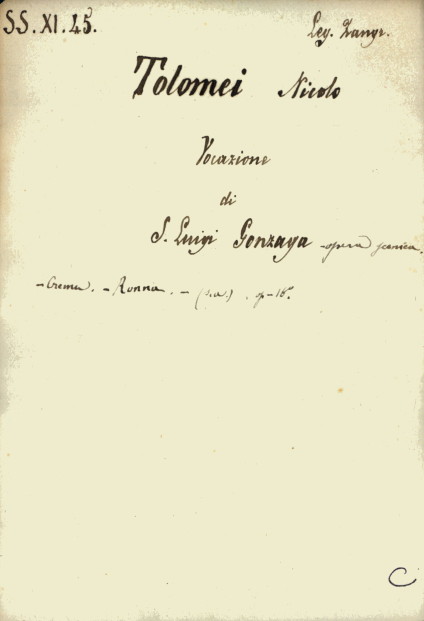 SS. XI. 45.
Leg. Zangr.
Tolomei Nicolo
Vocazione
di
S. Luigi Gonzaga - opera scenica.
- Crema. - Ronna. - (s.a.) . op-16°.
C